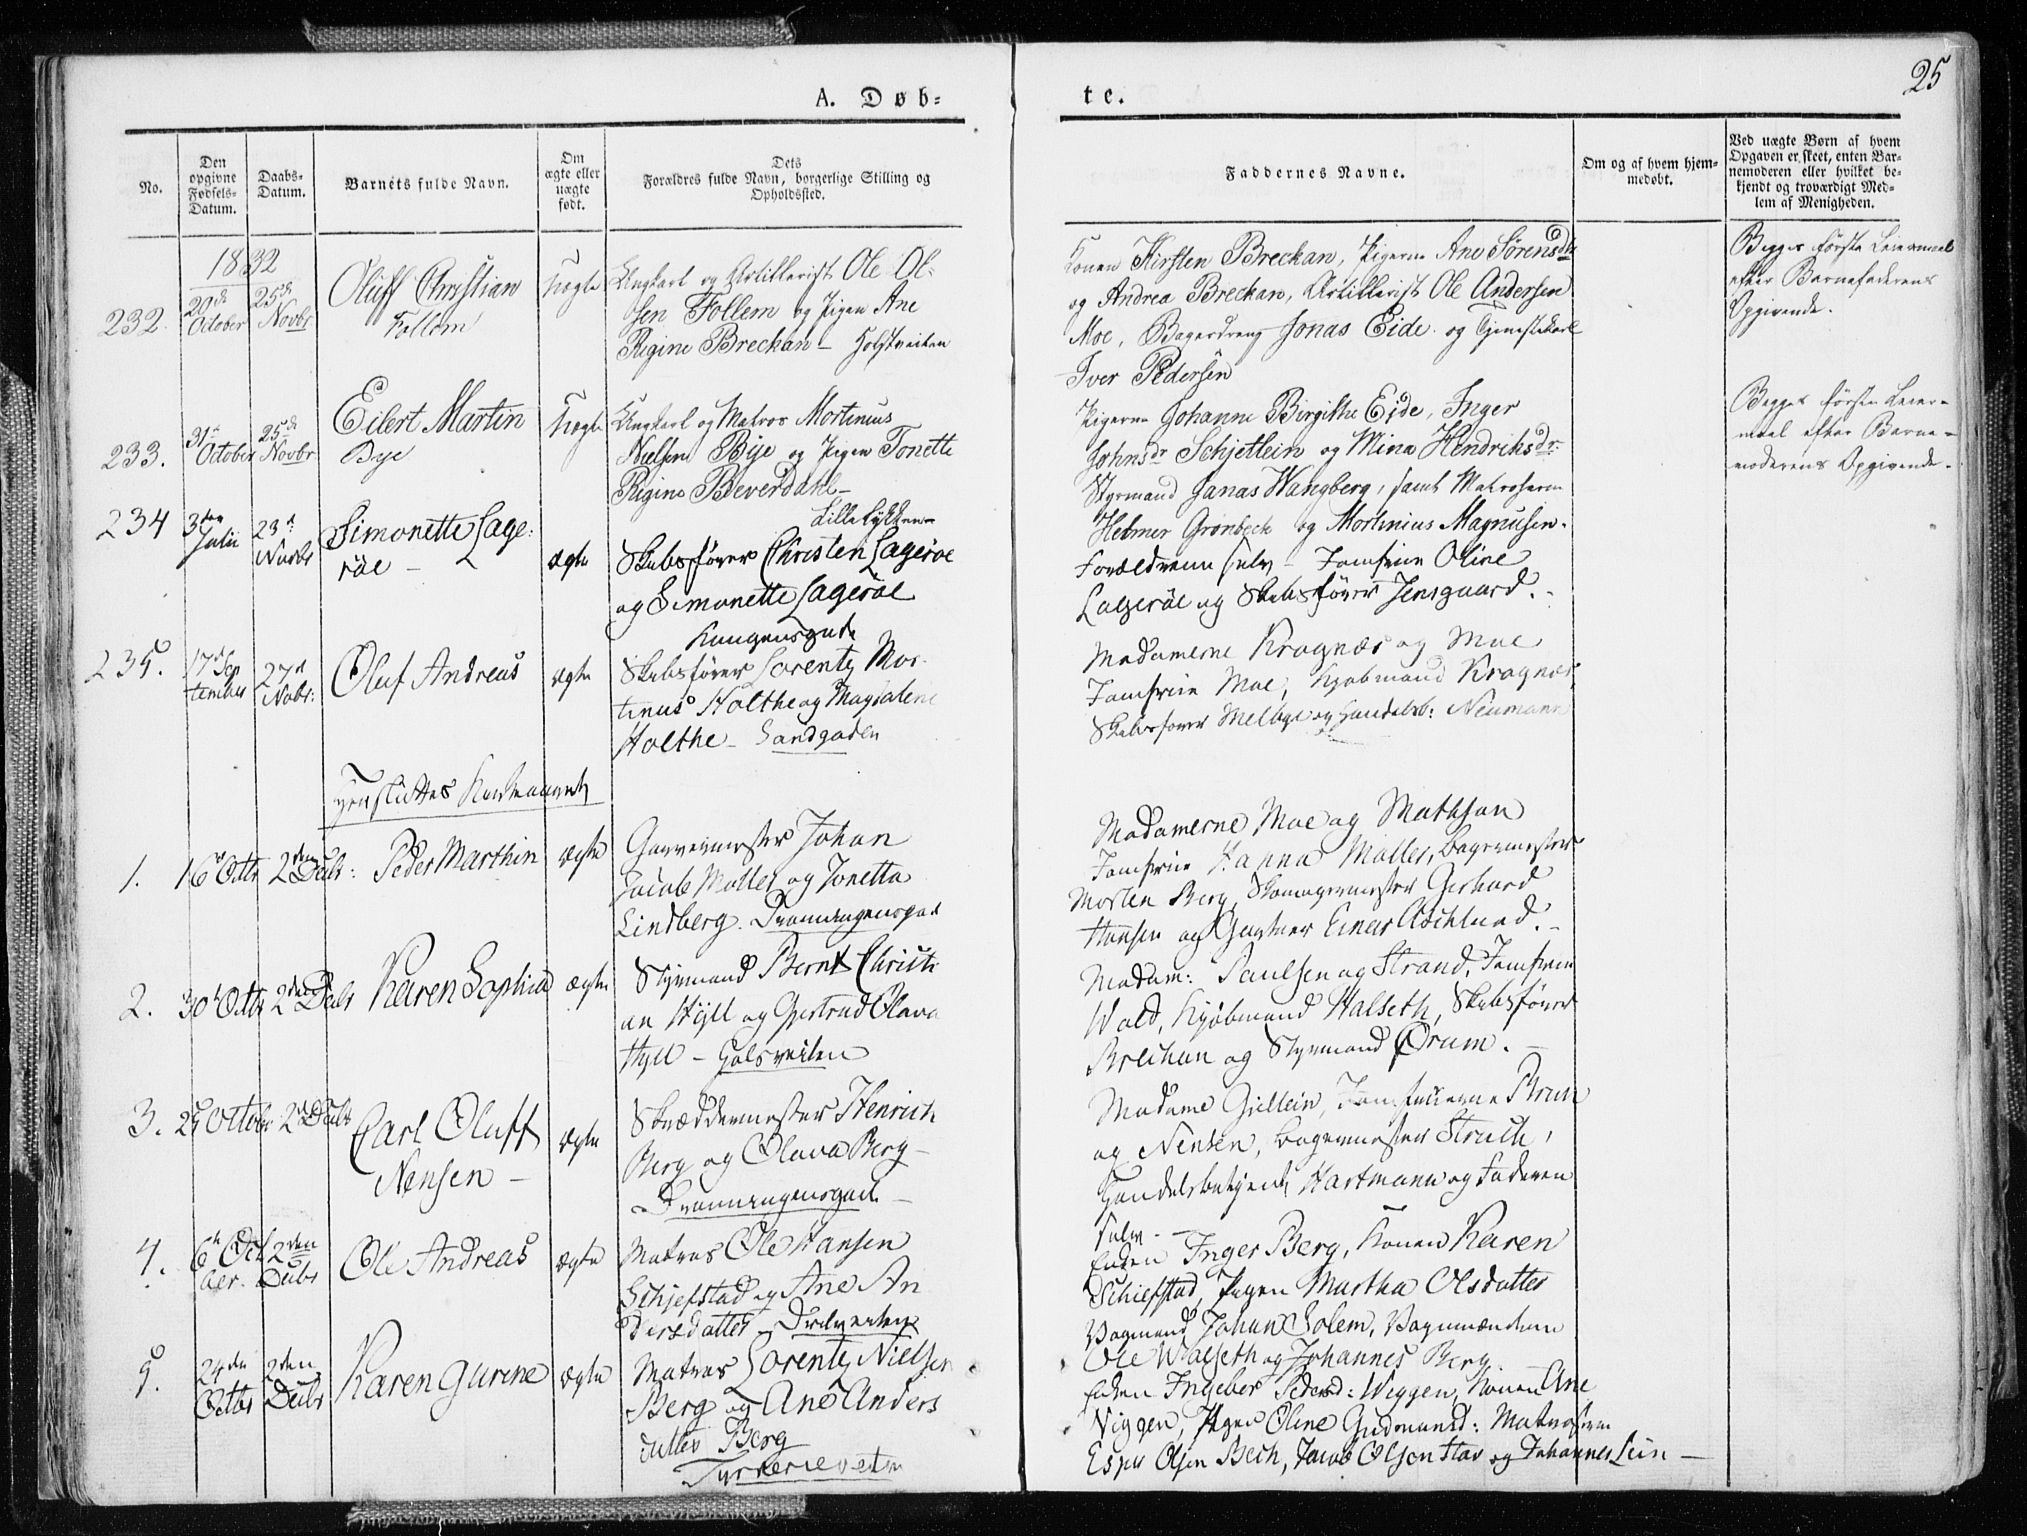 25
A. Døb-
te.
No.
Den opgivne Fødsels-Datum.
Daabs-Datum.
Barnets fulde Navn.
Om ægte eller uægte født.
Dets Forældres fulde Navn, borgerlige Stilling og Opholdssted.
Faddernes Navne.
Om og af hvem hjem-medøbt.
Ved uægte Børn af hvem Opgaven er skeet, enten Bar-nemoderen eller hvilket be-kjendt og troværdigt Med-lem af Menigheden.
1832
232. 20de October 25de Novbr Oluff Christian Follem Uægte
Ungkarl og Artillerist Ole Ol-
sen Follem og Pigen Ane
Regine Breckan -
Konen Kirsten Breckan, Pigerne Ane Sørensdtr
og Andrea Breckan, Artillerist Ole Andersen
Moe, Bagerdreng Jonas Eide og Tjenestekarl
Iver Pedersen
Begges første Leiermaal
efter Barnefaderens
Opgivende.
233. 31te October 25de Novbr Eilert Martin Bye Uægte
Ungkarl og Matros Mortinius
Nielsen Bye og Pigen Tonette
Regine Beverdahl -
Lillelykken -
Pigerne Johanne Birgithe Eide, Inger
Johnsdr Schjetlein og Mina Hendriksdr:
Styrmand Janas Wangberg, samt Matroserne
Helmer Grønbeck og Mortinius Magnusen.
Begges første Leier-
maal efter Barne-
moderens Opgivende.
234 3die Julii 23d Novbr Simonette Lage-
röe - ægte
Skibsfører Christen Lageröe
og Simonette Lageröe
Kongensgade
Forældrene selv - Jomfrue Oline
Lageröe og Skibsfører Jensgaard. -
235. 17d September 27d Novbr: Oluf Andreas ægte
Skibsfører Lorentz Mor-
tinus Holthe og Magdalene
Holthe - Sandgaden
Madamerne Kragnæs og Moe
Jomfrue Moe, Kjøbmand Kragnæs,
Skibsfører Melbye og Handelsb: Neumann
Her sluttes Kirkeaaret
1. 16d Octbr 2den Decbr: Peder Marthin ægte
Garvermester Johan
Jacob Møller og Jonetta
Lindberg. Dronningensgade
Madamerne Moe og Mathson
Jomfrue Hanna Møller, Bagermester
Morten Berg, Skomagermester Gerhard
Hansen og Gartner Einar Aschlund. -
2. 30d Octbr 2den Decbr Karen Sophia ægte
Styrmand Bernt Christi
an Hyll og Gjertrud Olava
Hyll -
Madam: Paulsen og Strand, Jomfrue
Wold, Kjøbmand Halseth, Skibsfører
Brechan og Styrmand Ørum. -
3. 25 Octobr 2d Decbr Carl Oluff
Nensen - ægte
Skræddermester Henrich
Berg og Olava Berg -
Dronningensgade -
Madame Gjellein, Jomfruerne Brun
og Nensen, Bagermester Struch,
Handelsbetjent Hartmann og Faderen
selv. -
4. 6te October. 2den Decbr Ole Andreas ægte
Matros Ole Hansen
Schjefstad og Ane An
dersdatter
Enken Inger Berg, Konen Karen
Schiefstad, Pigen Martha Olsdatter
Vognmand Johan Solem, Vognmændene
Ole Walseth og Johannes Berg.
5. 24de Octbr 2den Decbr Karen Gurine ægte
Matros Lorentz Nielsen
Berg og Ane Anders
datter Berg
Enken Ingebor Pedersd: Wiggen, Konen Ane
Viggen, Pigen Oline Gudmunsd: Matroserne
Espen Olsen Bech, Jacob Olsen Stav og Johannes Lein -